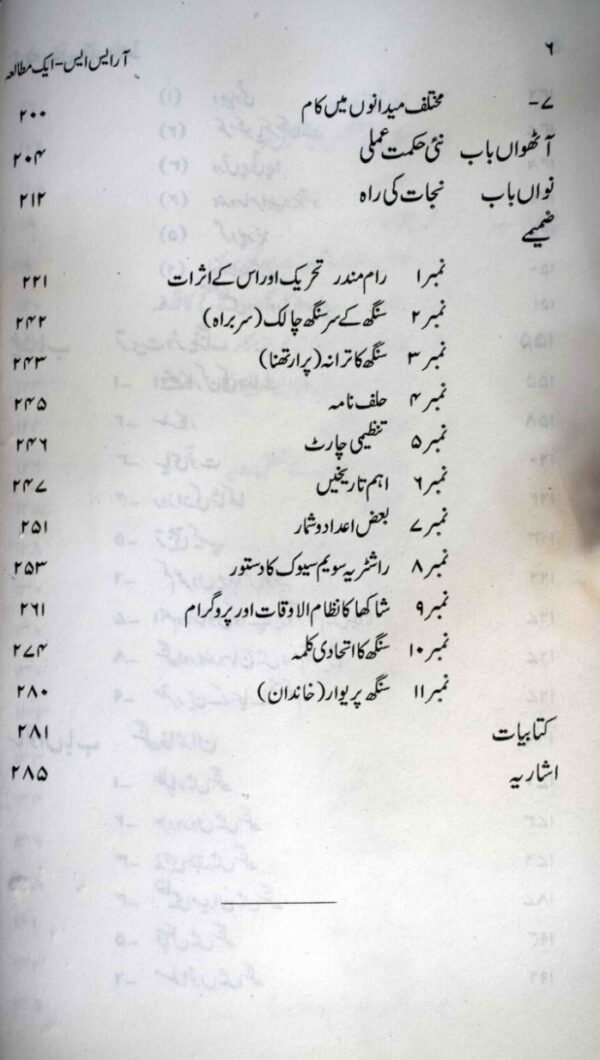 ۶
آر ایس ایس - ایک مطالعہ
۷- مختلف میدانوں میں کام ۲۰۰
آٹھواں باب نئی حکمت عملی ۲۰۴
نواں باب نجات کی راہ ۲۱۲
ضمیمے
نمبر ۱ رام مندر تحریک اور اس کے اثرات ۲۲۱
نمبر ۲ سنگھ کے سر سنگھ چالک (سربراہ) ۲۴۲
نمبر ۳ سنگھ کا ترانہ (پرارتھنا) ۲۴۳
نمبر ۴ حلف نامہ ۲۴۵
نمبر ۵ تنظیمی چارٹ ۲۴۶
نمبر ۶ اہم تاریخیں ۲۴۷
نمبر ۷ بعض اعداد و شمار ۲۵۱
نمبر ۸ راشٹریہ سویم سیوک کا دستور ۲۵۳
نمبر ۹ شاکھا کا نظام الاوقات اور پروگرام ۲۶۱
نمبر ۱۰ سنگھ کا اتحادی کلمہ ۲۷۴
نمبر ۱۱ سنگھ پریوار (خاندان) ۲۸۰
کتابیات ۲۸۱
اشاریہ ۲۸۵